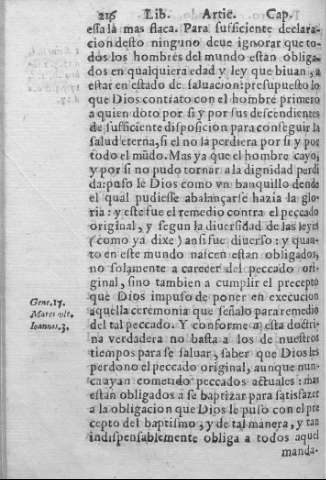 216 Lib. Artic. Cap.
essa la mas flaca. Para sufficiente declara-
cion desto ninguno deue ignorar que to-
dos los hombres del mundo estan obliga-
dos en qualquiera edad y ley que biuan, a
estar en estado de saluacion: presupuesto lo
que Dios contrato con el hombre primero
a quien doto por si y por sus descendientes
de sufficiente disposicion para conseguir la
salud eterna, si el no la perdiera por si y por
todo el mũdo. Mas ya que el hombre cayo,
y por si no pudo tornar a la dignidad perdi
da: puso le Dios como vn banquillo dende
el qual pudiesse abalançarse hazia la glo-
ria: y este fue el remedio contra el peccado
original, y segun la diuersidad de las leyes
(como ya dixe) ansi fue diuerso: y quan-
to en este mundo nascen estan obligados,
no solamente a carecer del peccado ori-
ginal, sino tambien a cumplir el precepto
que Dios impuso de poner en execucion
aquella ceremonia que señalo para remedio
del tal peccado. Y conforme a esta doctri-
na verdadera no basta a los de nuestros
tiempos para se saluar, saber que Dios les
perdono el peccado original, aunque nun-
ca ayan cometido peccados actuales: mas
estan obligados a se baptizar para satisfazer
a la obligacion que Dios le puso con el pre
cepto del baptismo, y de tal manera, y tan
indispensablemente obliga a todos aquel
manda-
Gene. 17.
Marci vlt.
Ioannes. 3.